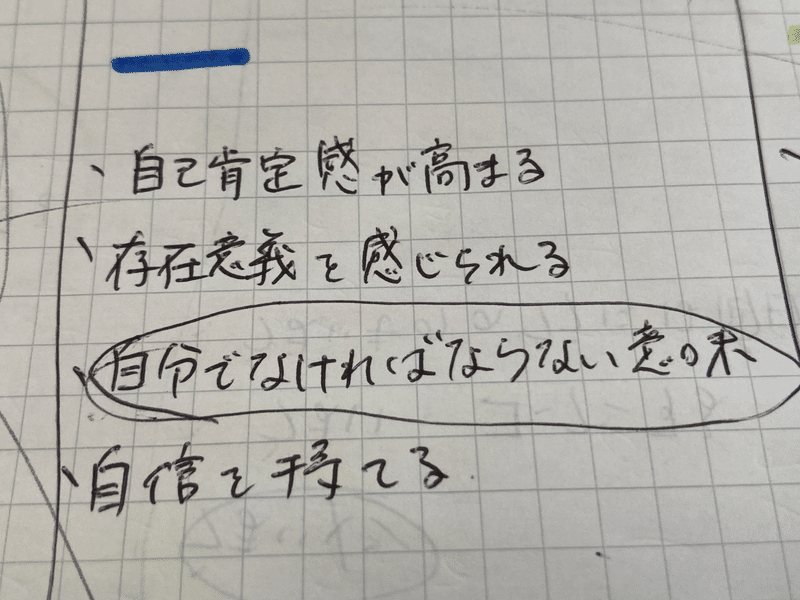 、自己肯定感が高まる
、存在意義を感じられる
、自分でなければならない意味
、自信を持てる